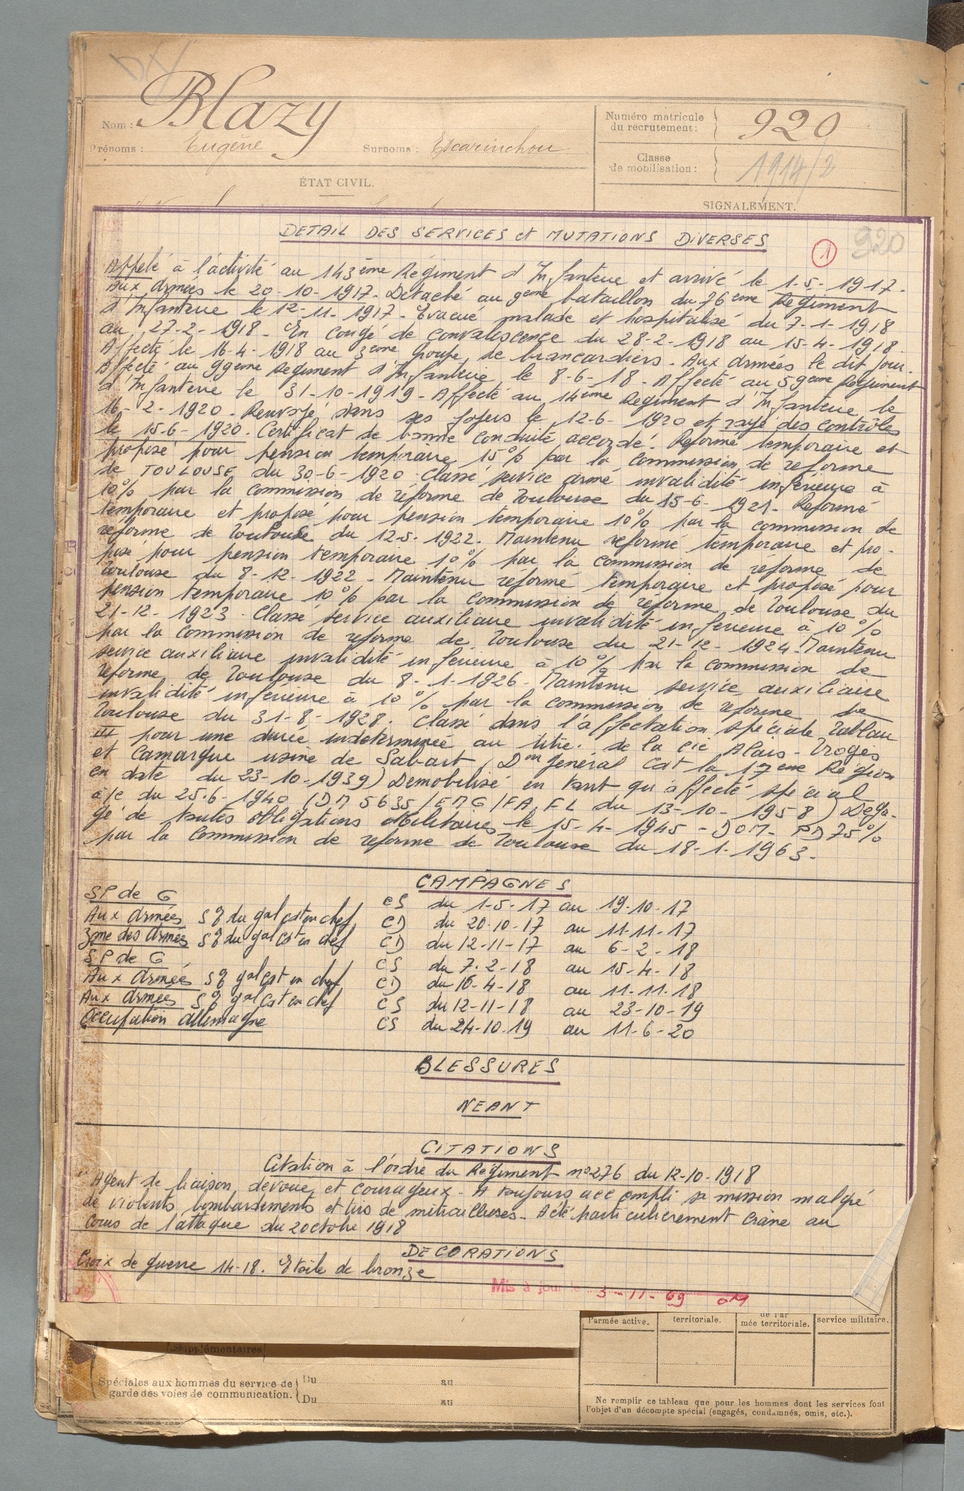 Nom : Blazy
Prénoms : Eugène Surnoms : Escarinchou
Numéro matricule du recrutement : 920
Classe de mobilisation : 1914/2
ÉTAT CIVIL.
SIGNALEMENT.
DETAIL DES SERVICES et MUTATIONS DIVERSES
1 920
Appelé à l'activité au 143ème Régiment d'Infanterie et arrivé le 1-5-1917.
Aux armées le 20-10-1917. Détaché au 9ème bataillon du 76ème Régiment
d'Infanterie le 12-11-1917. Evacué malade et hospitalisé du 7-1-1918
au 27-2-1918. En congé de convalescence du 28-2-1918 au 15-4-1918.
Affecté le 16-4-1918 au 3ème groupe de brancardiers. Aux armées le dit jour.
Affecté au 99ème Régiment d'Infanterie le 8-6-18. Affecté au 59ème Régiment
d'Infanterie le 31-10-1919. Affecté au 14ème Régiment d'Infanterie le
16-12-1920. Renvoyé dans ses foyers le 12-6-1920 et rayé des contrôles
le 15-6-1920. Certificat de bonne conduite accordé. Réformé temporaire et
proposé pour pension temporaire 15% par la commission de réforme
de TOULOUSE du 30-6-1920 Classé service armé invalidité inférieure à
10% par la commission de réforme de Toulouse du 15-6-1921. Réformé
temporaire et proposé pour pension temporaire 10% par la commission de
réforme de Toulouse du 12-5-1922. Maintenu réformé temporaire et pro-
posé pour pension temporaire 10% par la commission de réforme de
Toulouse du 8-12-1922. Maintenu réformé temporaire et proposé pour
pension temporaire 10% par la commission de réforme de Toulouse du
21-12-1923. Classé service auxiliaire invalidité inférieure à 10%
par la commission de réforme de Toulouse du 21-12-1924. Maintenu
service auxiliaire invalidité inférieure à 10% par la commission de
réforme de Toulouse du 8-1-1926. Maintenu service auxiliaire
invalidité inférieure à 10% par la commission de réforme de
Toulouse du 31-8-1928. Classé dans l'affectation spéciale Tableau
III pour une durée indéterminée au titre de la cie Alais-Froges
et Camargue usine de Sabart (Don général Cdt la 17ème Région
en date du 23-10-1939) Démobilisé en tant qu'affecté spécial
à/c du 25-6-1940 (DM 5635/EMG/FA FL du 13-10-1958) Déga-
gé de toutes obligations militaires le 15-4-1945 - DOM- PD 75%
par la Commission de réforme de Toulouse du 18-1-1963.
CAMPAGNES
SP de G CS du 1-5-17 au 19-10-17
Aux Armées S/g du gal Cst en chef CD du 20-10-17 au 11-11-17
Zone des Armées S/g du gal Cst en chef CD du 12-11-17 au 6-2-18
SP de G CS du 7-2-18 au 15-4-18
Aux Armées S/g gal Cst en chef CD du 16-4-18 au 11-11-18
Aux Armées S/g gal Cst en chef CS du 12-11-18 au 23-10-19
Occupation Allemagne CS du 24-10-19 au 11-6-20
BLESSURES
NEANT
CITATIONS
Citation à l'ordre du Régiment n°276 du 12-10-1918
"Agent de liaison, dévoué et courageux. A toujours accompli sa mission malgré
de violents bombardements et tirs de mitrailleuses. A été particulièrement crâne au
cours de l'attaque du 2 octobre 1918
DECORATIONS
Croix de guerre 14-18. Etoile de bronze
Mis à jour le 3-11-69
l'armée active. territoriale. de l'ar mée territoriale. service militaire.
Supplémentaires
Spéciales aux hommes du service de garde des voies de communication. Du au
Du au
Ne remplir ce tableau que pour les hommes dont les services font
l'objet d'un décompte spécial (engagés, condamnés, omis, etc.).